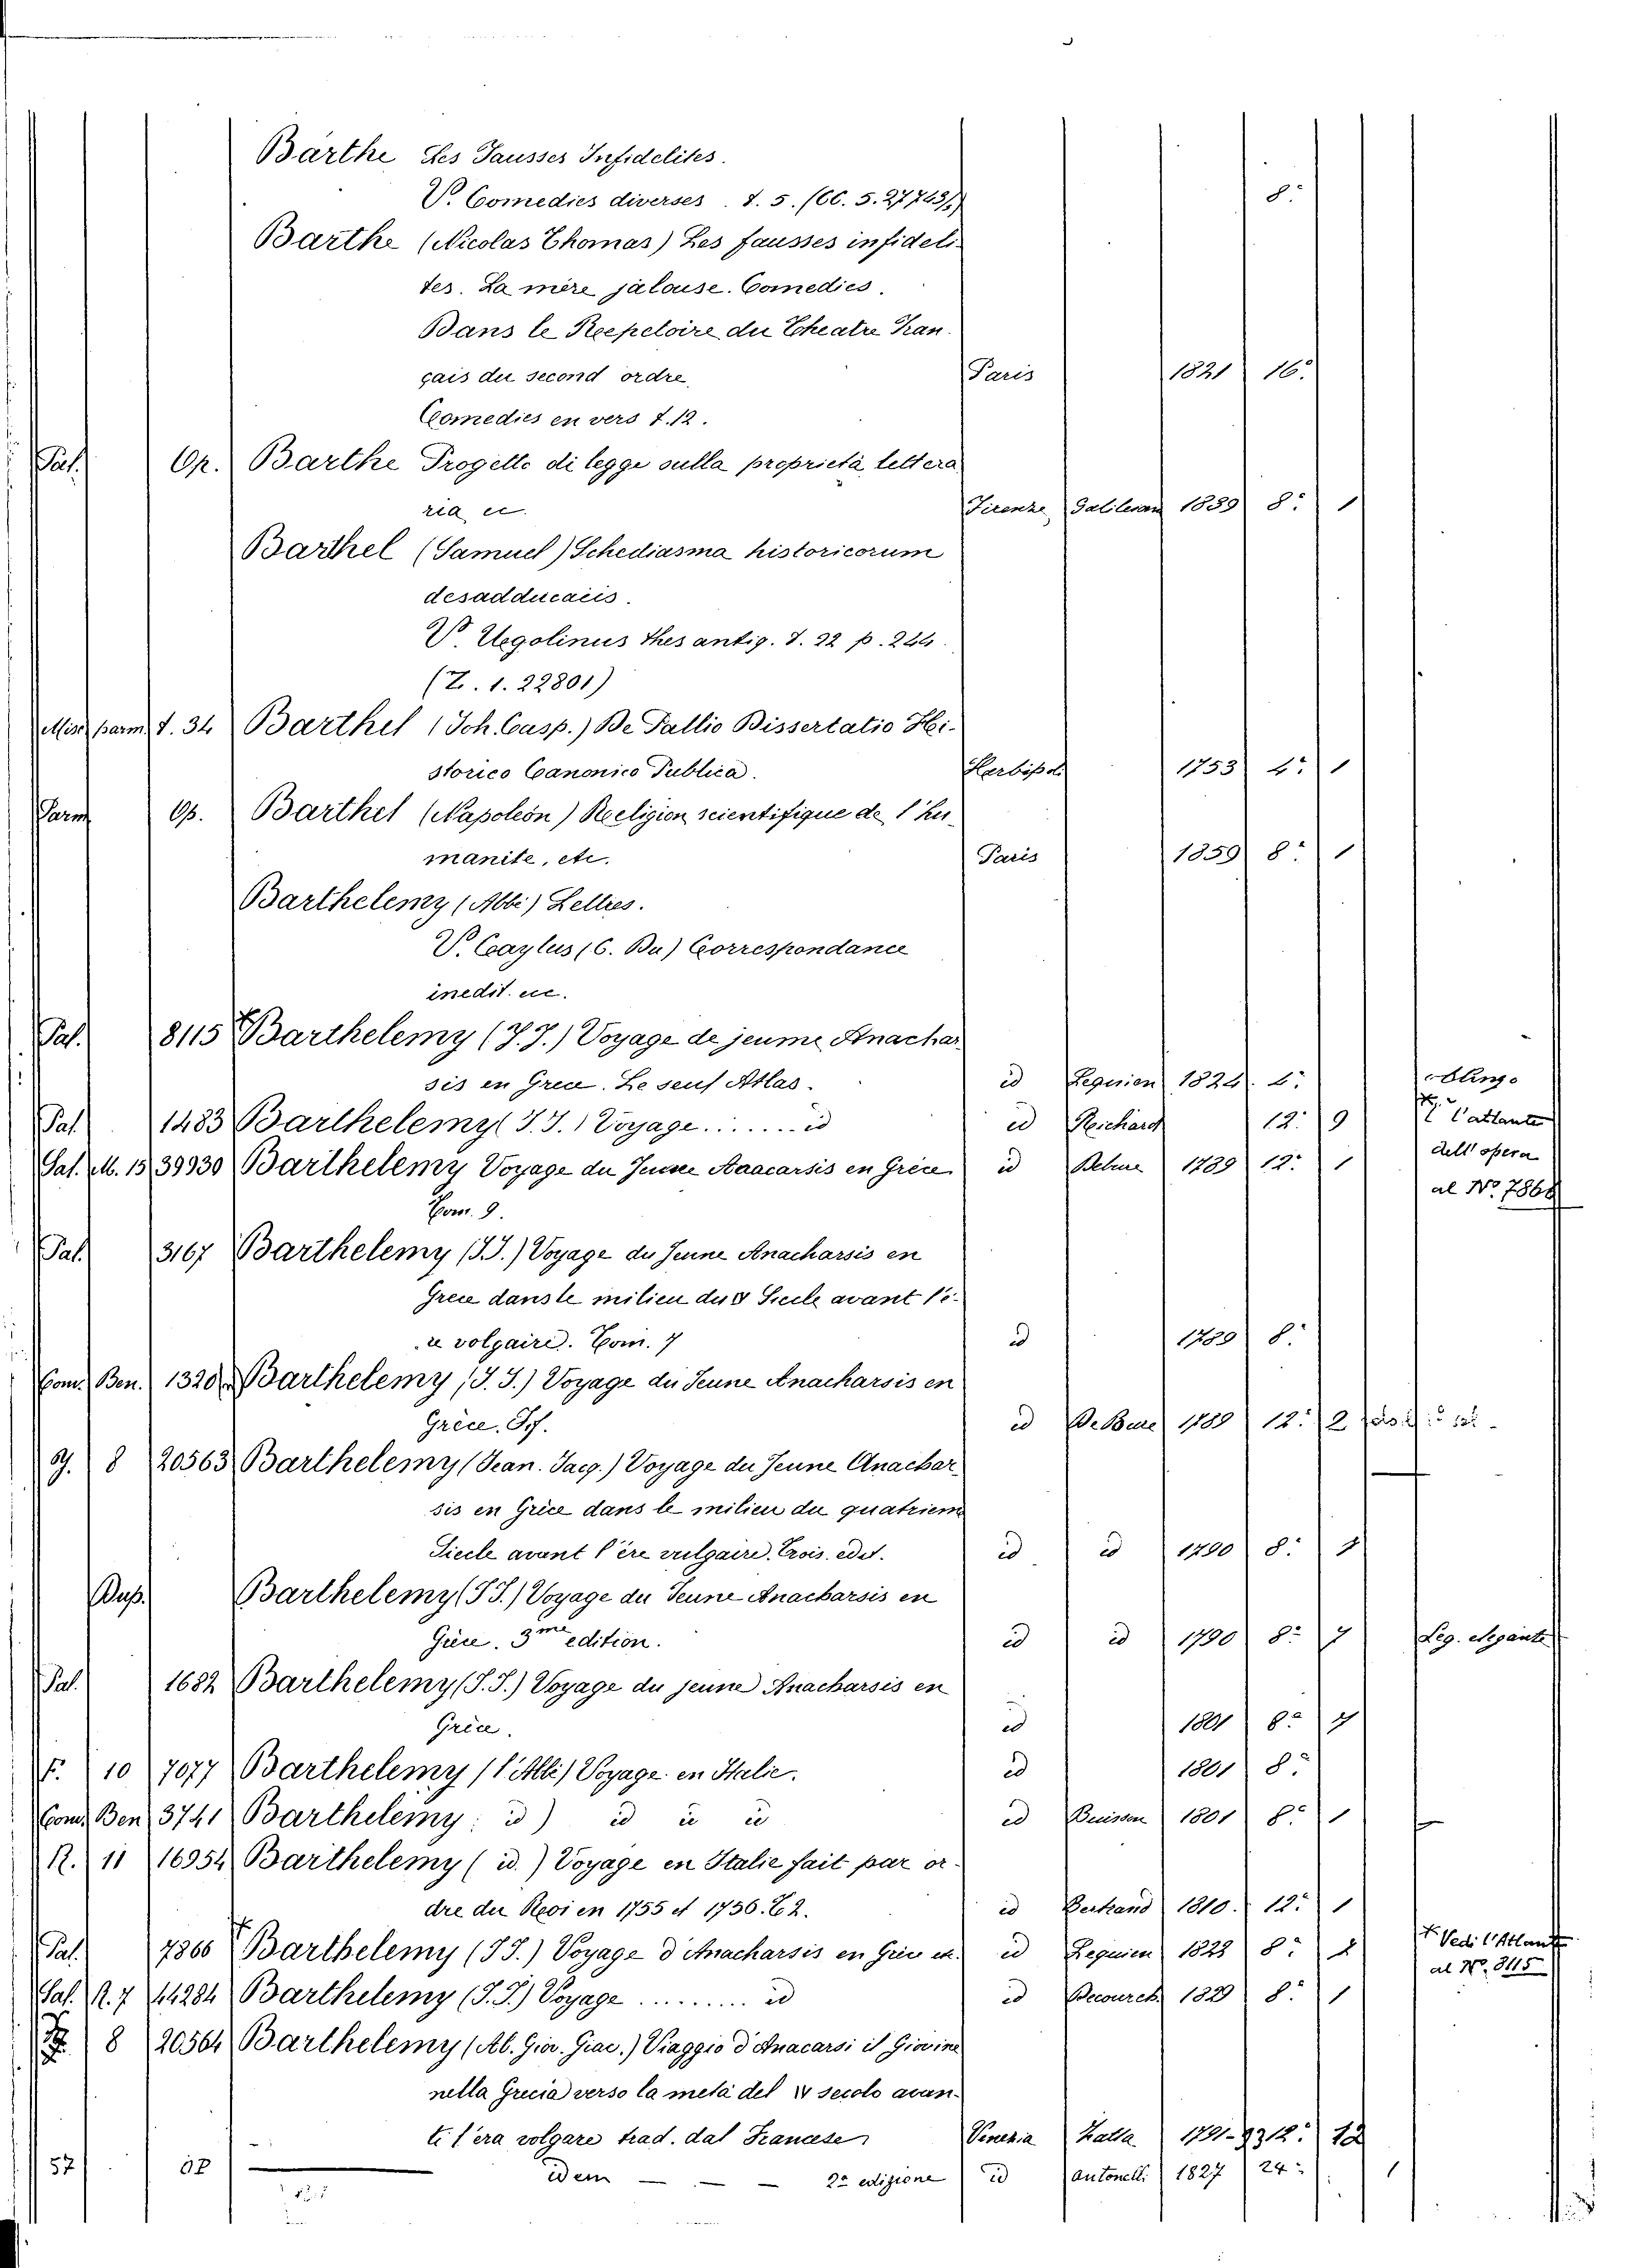 Barthe Les Fausses Infidelites.
V. Comedies diverses. T. 5. (CC. 5. 27743/5) 8:
Barthe (Nicolas Thomas) Les fausses infideli-
tes. La mère jalouse. Comedies.
Dans le Repetoire du Theatre Fran-
çais du second ordre. Paris 1821 16:
Comedies en vers T. 12.
Pal. Op. Barthe Progetto di legge sulla proprietà lettera
ria ec. Firenze Galileiana 1839 8: 1
Barthel (Samuel) Schediasma historicorum
desadducaeis.
V. Ugolinus thes antiq. T. 22 p. 244.
(Z. 1. 22801)
Misc. parm. T. 34 Barthel (Joh. Casp.) De Pallio Dissertatio Hi-
storico Canonico Publica. Herbipoli 1753 4: 1
Parm Op. Barthel (Napoléon) Religion scientifique de l'hu-
manité, etc. Paris 1859 8: 1
Barthelemy (Abbé) Lettres.
V. Caylus (C. Du) Correspondance
inedit. ec.
Pal. 8115 Barthelemy (J. J.) Voyage de jeume Anachar
sis en Grece. Le seul Atlas. id Lequien 1824. 4: oblungo
Pal. 1483 Barthelemy (J. J.) Voyage....... id id Reichard 12: 9 V. l'atlante
Sal. M. 15 39930 Barthelemy Voyage du Jeune Anacarsis en Grèce id Debure 1789 12: 1 dell'opera
Tom. 9. al No. 7868
Pal. 3167 Barthelemy (J.J.) Voyage du Jeune Anacharsis en
Grece dans le milieu du 4 Siecle avant l'è-
re volgaire. Tom. 7 id 1789 8:
Com. Ben. 1320 Barthelemy (J. J.) Voyage du Jeune Anacharsis en
Grèce. id De Bure 1789 12: 2
J. 8 20563 Barthelemy (Jean. Jacq.) Voyage du Jeune Anachar
sis en Grèce dans le milieu du quatrieme
Siecle avant l'ère vulgaire. Trois. edit. id id 1790 8: 7
Dup. Barthelemy (J J.) Voyage du Jeune Anacharsis en
Grèce. 3me edition. id id 1790 8: 7 Leg. elegante
Pal. 1682 Barthelemy (J. J.) Voyage du jeune Anacharsis en
Grèce. id 1801 8: 7
F. 10 7077 Barthelemy (l'Abbé) Voyage en Italie. id 1801 8:
Com. Ben 3741 Barthelemy id) id id id id Buisson 1801 8: 1
R. 11 16954 Barthelemy (id.) Voyage en Italie fait par or-
dre du Roi en 1755 et 1756. T 2. id Bertrand 1810. 12: 1
Pal. 7866 Barthelemy (J J.) Voyage d'Anacharsis en Grèce ec. id Lequien 1822 8: Vedi l'Atlante
al No. 8115
Sal. R. 7 44284 Barthelemy (J. J.) Voyage......... id id Decourch. 1829 8: 1
8 20564 Barthelemy (Ab. Giov. Giac.) Viaggio d'Anacarsi il Giovine
nella Grecia verso la metà del IV secolo avan-
ti l'era volgare trad. dal Francese Venezia Zatta 1791-93 12: 12
57 idem — — — 2a edizione id Antonelli 1827 24: 1